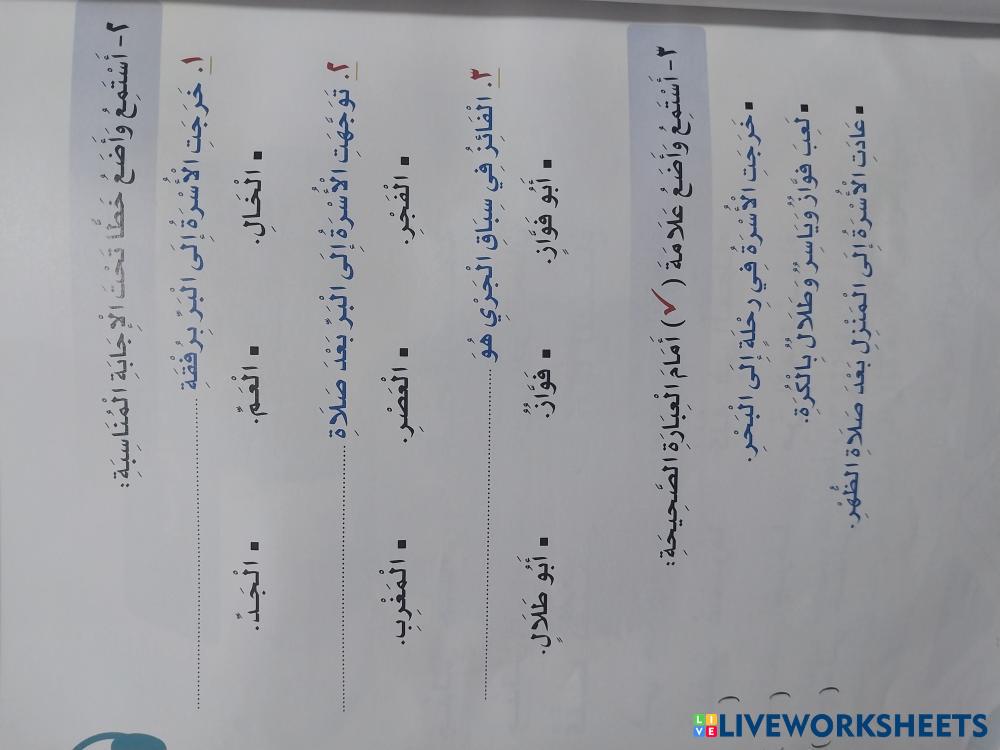 ٢- أَسْتَمِعُ وَأَضَعُ خَطًّا تَحْتَ الْإِجَابَةِ الْمُنَاسَبَةِ:
١. خَرَجَتِ الْأُسْرَةُ إِلَى الْبَرِّ بِرُفْقَةِ ..............................
■ الْخَالِ. ■ الْعَمِّ. ■ الْجَدِّ.
٢. تَوَجَّهَتِ الْأُسْرَةُ إِلَى الْبَرِّ بَعْدَ صَلَاةِ ..............................
■ الْفَجْرِ. ■ الْعَصْرِ. ■ الْمَغْرِبِ.
٣. الْفَائِزُ فِي سِبَاقِ الْجَرْيِ هُوَ ..............................
■ أَبُو فَوَّازٍ. ■ فَوَّازٌ. ■ أَبُو طَلَالٍ.
٣- أَسْتَمِعُ وَأَضَعُ عَلَامَةَ ( ✓ ) أَمَامَ الْعِبَارَةِ الصَّحِيحَةِ:
■ خَرَجَتِ الْأُسْرَةُ فِي رِحْلَةٍ إِلَى الْبَحْرِ. (
■ لَعِبَ فَوَّازٌ وَيَاسِرٌ وَطَلَالٌ بِالْكُرَةِ. ( )
■ عَادَتِ الْأُسْرَةُ إِلَى الْمَنْزِلِ بَعْدَ صَلَاةِ الظُّهْرِ. ( )
LIVEWORKSHEETS